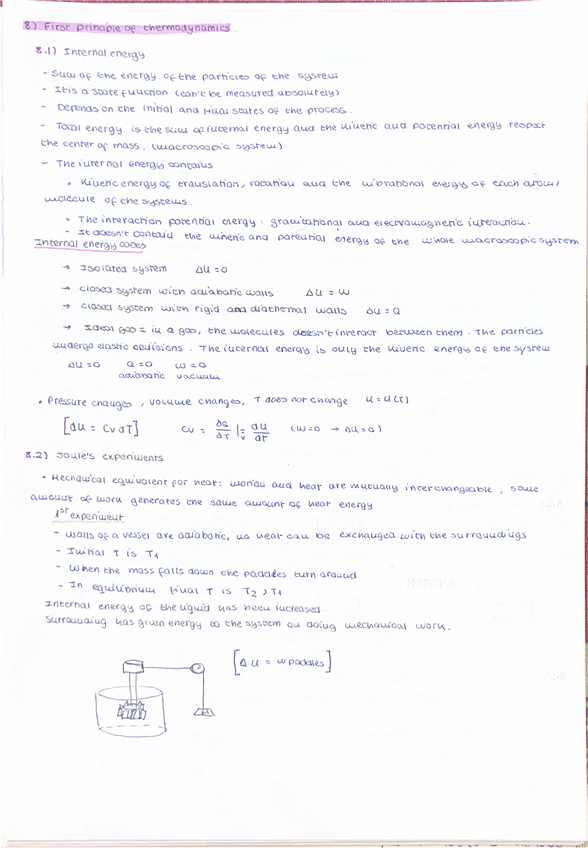 8) First principle of thermodynamics.
8.1) Internal energy
- Sum of the energy of the particles of the system
- It is a state function (can't be measured absolutely)
- Depends on the initial and final states of the process.
- Total energy is the sum of internal energy and the kinetic and potential energy respect
the center of mass. (macroscopic system)
- The internal energy contains
• Kinetic energy of translation, rotation and the vibrational energy of each atom/
molecule of the systems.
• The interaction potential energy: gravitational and electromagnetic interaction.
- It doesn't contain the kinetic and potential energy of the whole macroscopic system
Internal energy cases
→ Isolated system ΔU = 0
→ Closed system with adiabatic walls ΔU = W
→ Closed system with rigid and diathermal walls ΔU = Q
→ Ideal gas = in a gas, the molecules doesn't interact between them. The particles
undergo elastic collisions. The internal energy is only the kinetic energy of the system
ΔU = 0 Q = 0 W = 0
adiabatic vacuum
• Pressure changes, volume changes, T does not change U = U(T)
[dU = Cv dT] Cv = δQ/δT |v = dU/dT (W=0 → ΔU=Q)
8.2) Joule's experiments
• Mechanical equivalent for heat: work and heat are mutually interchangeable; same
amount of work generates the same amount of heat energy
1st experiment
- Walls of a vessel are adiabatic, no heat can be exchanged with the surroundings
- Initial T is T1
- When the mass falls down the paddles turn around
- In equilibrium final T is T2 > T1
Internal energy of the liquid has been increased
Surrounding has given energy to the system on doing mechanical work.
[ΔU = W paddles]